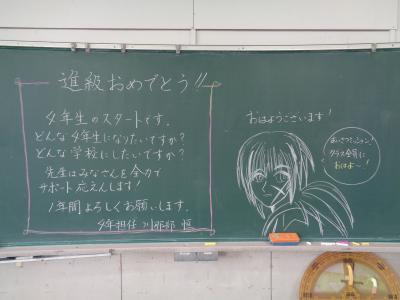 進級おめでとう!!
4年生のスタートです。
どんな4年生になりたいですか?
どんな学校にしたいですか?
先生はみなさんを全力で
サポート応えんします!
1年間よろしくお願いします。
4年担任
おはようございます!
あいさつミッション!
クラス全員に
おはよ〜!